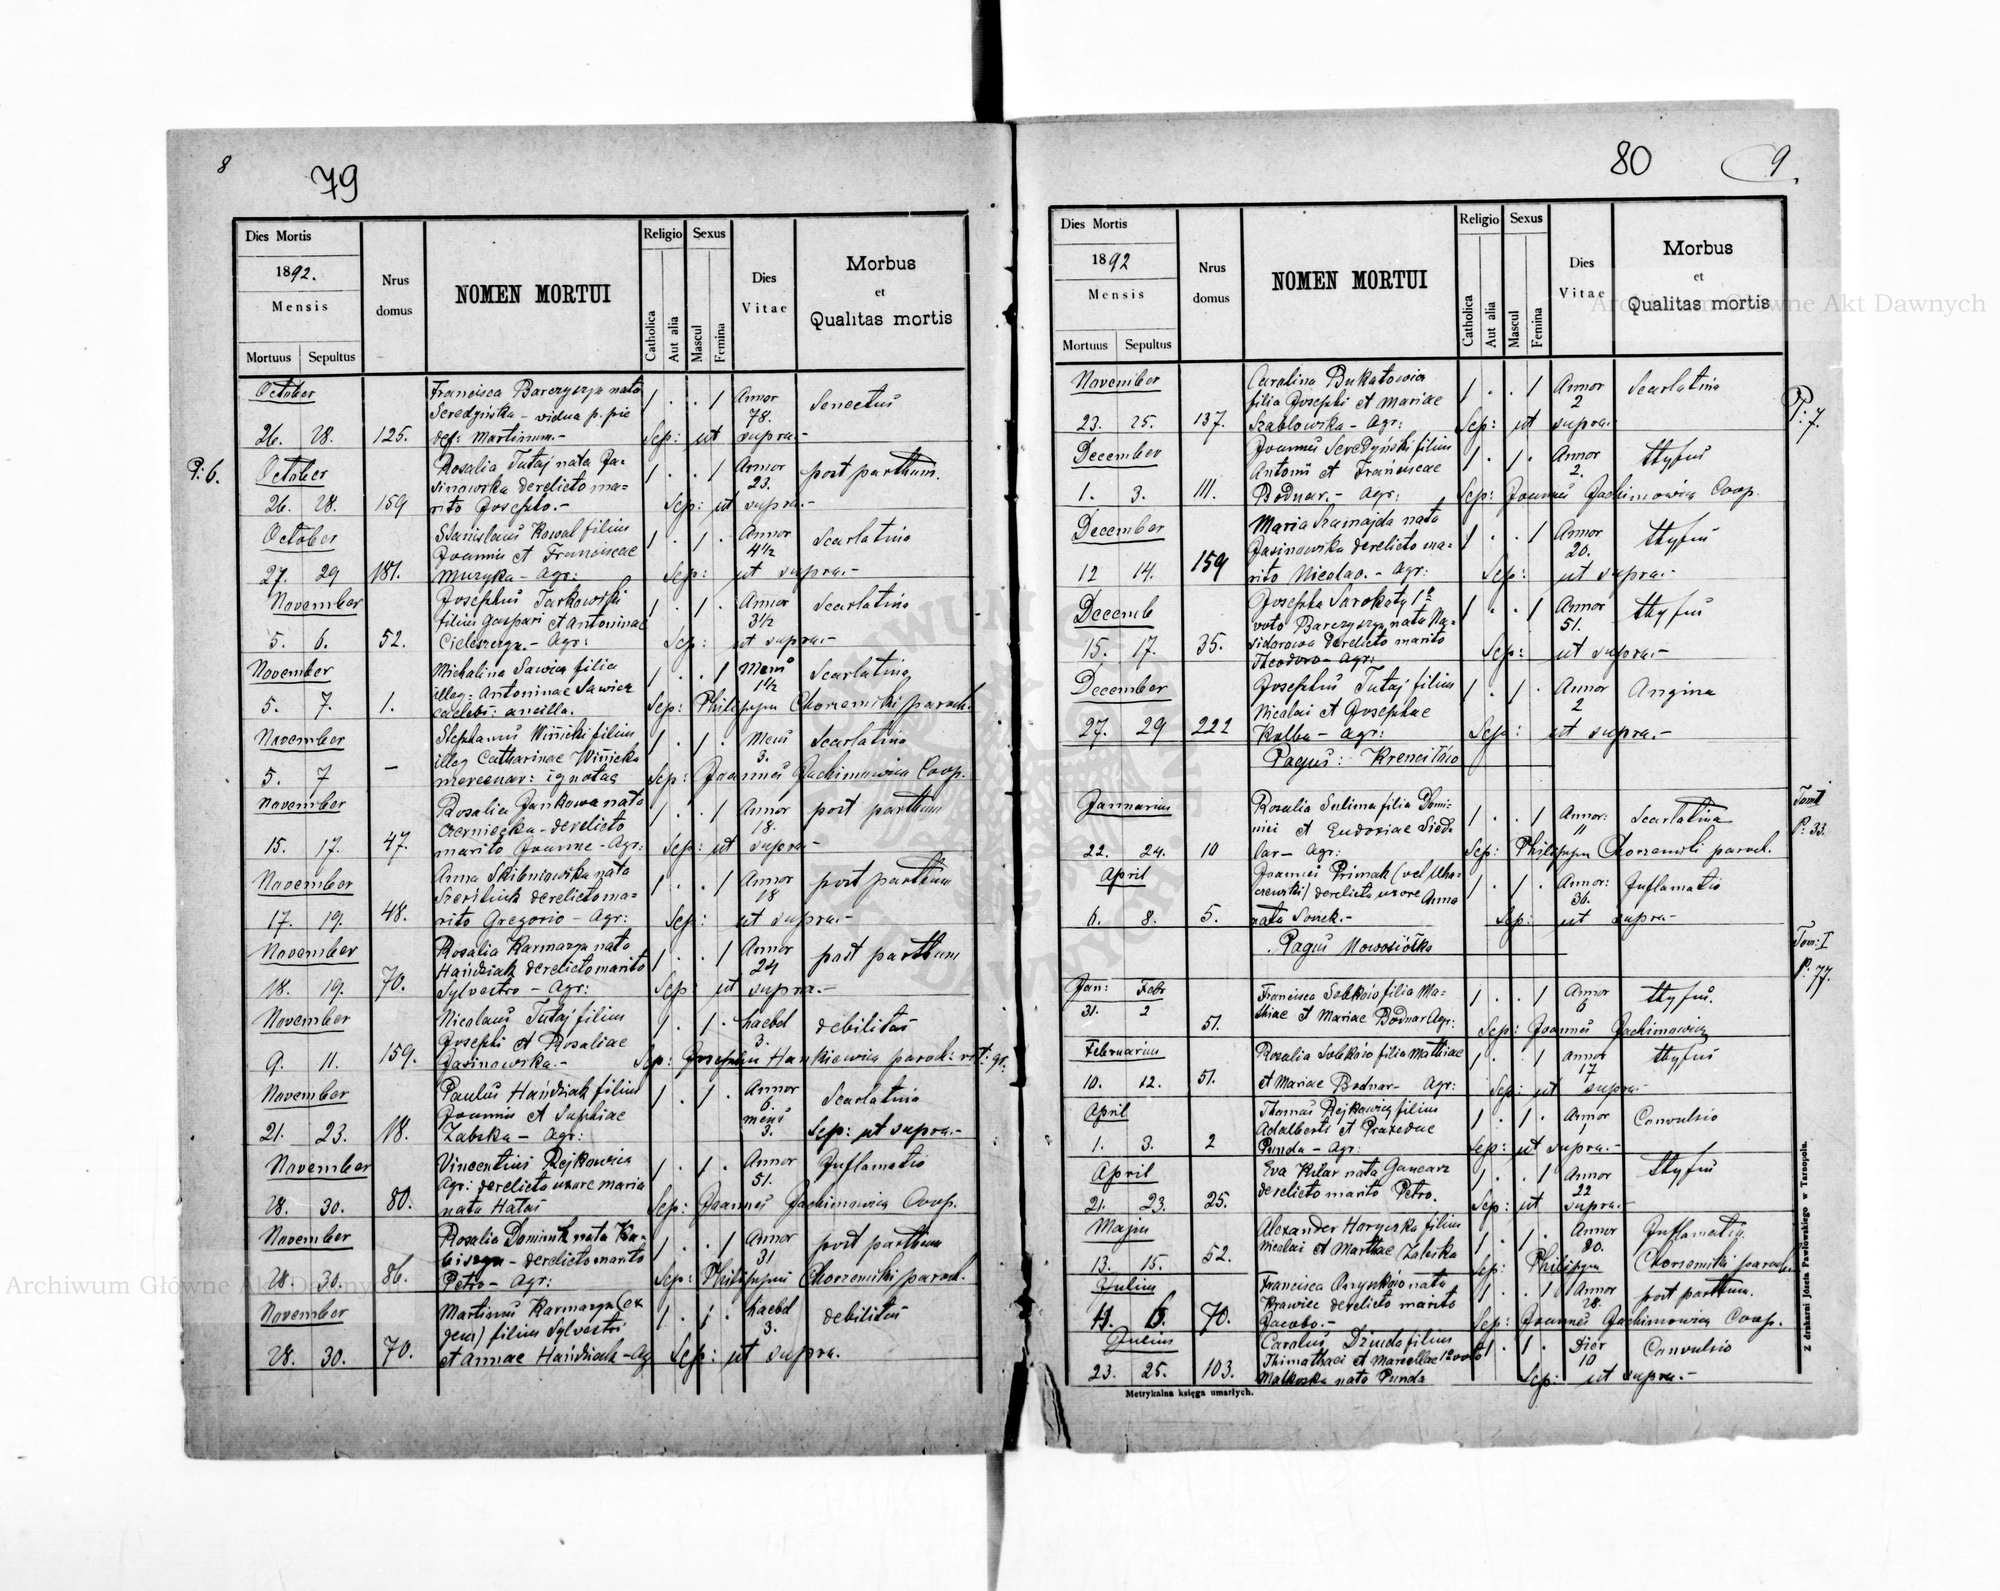 8
79
Dies Mortis
1892.
Mensis
Mortuus Sepultus
Nrus domus
NOMEN MORTUI
Religio
Catholica
Aut alia
Sexus
Mascul
Femina
Dies Vitae
Morbus
et
Qualitas mortis
October Francisca Barczyszyn nata 1 . . 1 Annor Senectus
Seredyńska - vidua p. pie 78.
26. 28. 125. def: Martinum.- Sep: ut supra.-
P: 6.
October Rosalia Tutaj nata Ja= 1 . . 1 Annor post parthum.
sinowska derelicto ma= 23.
26. 28. 159 rito Josepho.- Sep: ut supra.-
October Stanislaus Kowal filius 1 . 1 . Annor Scarlatina
Joannis et Franciscae 4½
27. 29 181. Muzyka - Agr: Sep: ut supra.-
November Josephus Tarkowski 1 . 1 . Annor Scarlatina
filius Gaspari et Antoninae 3½
5. 6. 52. Agr: Sep: ut supra.-
November Michalina Sawicz filia 1 . . 1 Mens Scarlatina
illeg: Antoninae Sawicz 1½
5. 7. 1. caelebs: ancilla. Sep: Philippus Chorzemski paroch.
November Stephanus Winicki filius 1 . 1 . Mens Scarlatina
illeg Catharinae Winicka 3.
5. 7 - mercenar: ignotae Sep: Joannes Jachimowicz Coop.
November Rosalia Jankowa nata 1 . . 1 Annor post parthum
Czerniecka - derelicto 18.
15. 17. 47. marito Joanne - Agr: Sep: ut supra-
November Anna Skibniewska nata 1 . . 1 Annor post parthum
derelicto ma= 18
17. 19. 48. rito Gregorio - Agr: Sep: ut supra.-
November Rosalia Karmazyn nata 1 . . 1 Annor post parthum
Hańdziak derelicto marito 24
18. 19. 70. Sylvestro - Agr: Sep: ut supra.-
November Nicolaus Tutaj filius 1 . 1 . haebd debilitas
Josephi et Rosaliae 3.
9. 11. 159. Jasinowska.- Sep: Josephus Hankiewicz paroch: rit: gr.
November Paulus Hańdziak filius 1 . 1 . Annor Scarlatina
Joannis et Sophiae 6. mens
21. 23. 18. Zabska - Agr: 3. Sep: ut supra.-
November Vincentius Rejkowicz 1 . 1 . Annor Inflamatio
Agr: derelicta uxore Maria 51.
28. 30. 80. nata Hałas Sep: Joannes Jachimowicz Coop.
November Rosalia Dominik nata Ka= 1 . . 1 Annor post parthum
derelicto marito 31
28. 30. 86. Petro - Agr: Sep: Philippus Chorzemski paroch.
November Martinus Karmazyn (ex 1 . 1 . haebd debilitas
gem) filius Sylvestri 3.
28. 30. 70. et Annae Hańdziak - Ag Sep: ut supra.
80
9
Dies Mortis
1892
Mensis
Mortuus Sepultus
Nrus domus
NOMEN MORTUI
Religio
Catholica
Aut alia
Sexus
Mascul
Femina
Dies Vitae
Morbus
et
Qualitas mortis
November Carolina Bukatowicz 1 . . 1 Annor Scarlatina
filia Josephi et Mariae 2
23. 25. 137. Szablowska - Agr: Sep: ut supra.
P: 7.
December Joannes Seredyński filius 1 . 1 . Annor thyfus
Antonii et Franciscae 2.
1. 3. 111. Bodnar.- Agr: Sep: Joannes Jachimowicz Coop.
December Maria Szamajda nata 1 . . 1 Annor thyfus
Jasinowska derelicto ma= 20.
12 14. 159 rito Nicolao.- Agr: Sep: ut supra.-
Decemb Josepha Sarokaty 1o 1 . . 1 Annor thyfus
voto Barczyszyn nata Na= 51.
15. 17. 35. derelicto marito Sep: ut supra.-
Theodoro - Agr:
December Josephus Tutaj filius 1 . 1 . Annor Angina
Nicolai et Josephae 2
27. 29 222 Kulba - Agr: Sep: ut supra.-
Pagus: Krencilów
Januarius Rosalia Sulima filia Domi= 1 . . 1 Annor: Scarlatina
nici et Eudoxiae Sied= 11
22. 24. 10 lar - Agr: Sep: Philippus Chorzemski paroch.
Tom I
P: 33.
April Joannes Primak (vel 1 . 1 . Annor: Inflamatio
derelicta uxore Anna 36.
6. 8. 5. nata Sep: ut supra-
Pagus Nowosiółka
Tom: I
P: 77.
Jan: Febr Francisca Sobków filia Ma= 1 . . 1 Annor thyfus.
31. 2 51. thiae et Mariae Bodnar Agr: 6 Sep: Joannes Jachimowicz
Februarius Rosalia Sobków filia Mathiae 1 . . 1 Annor thyfus
10. 12. 51. et Mariae Bodnar - Agr: 17 Sep: ut supra-
April Thomas Rejkowicz filius 1 . 1 . Annor Convulsio
Adalberti et Praxedae 1
1. 3. 2 Punda - Agr: Sep: ut supra.-
April Eva Kilar nata Gancarz 1 . . 1 Annor thyfus
21. 23. 25. derelicto marito Petro. 22 Sep: ut supra.-
Majus Alexander filius 1 . 1 . Annor Inflamatio.
13. 15. 52. Nicolai et Marthae Zaleska 20. Sep: Philippus Chorzemski paroch.
Julius Francisca nata 1 . . 1 Annor post parthum.
Krawiec derelicto marito 28.
70. Jacobo.- Sep: Joannes Jachimowicz Coop.
Julius Carolus Dziuda filius 1 . 1 . Dier Convulsio
Thimothaei et Marcellae 1o voto 10
23. 25. 103. nata Punda Sep: ut supra.-
Metrykalna księga umarłych.
Z drukarni Józefa Pawłowskiego w Tarnopolu.
Archiwum Główne Akt Dawnych
Archiwum Główne Akt Dawnych